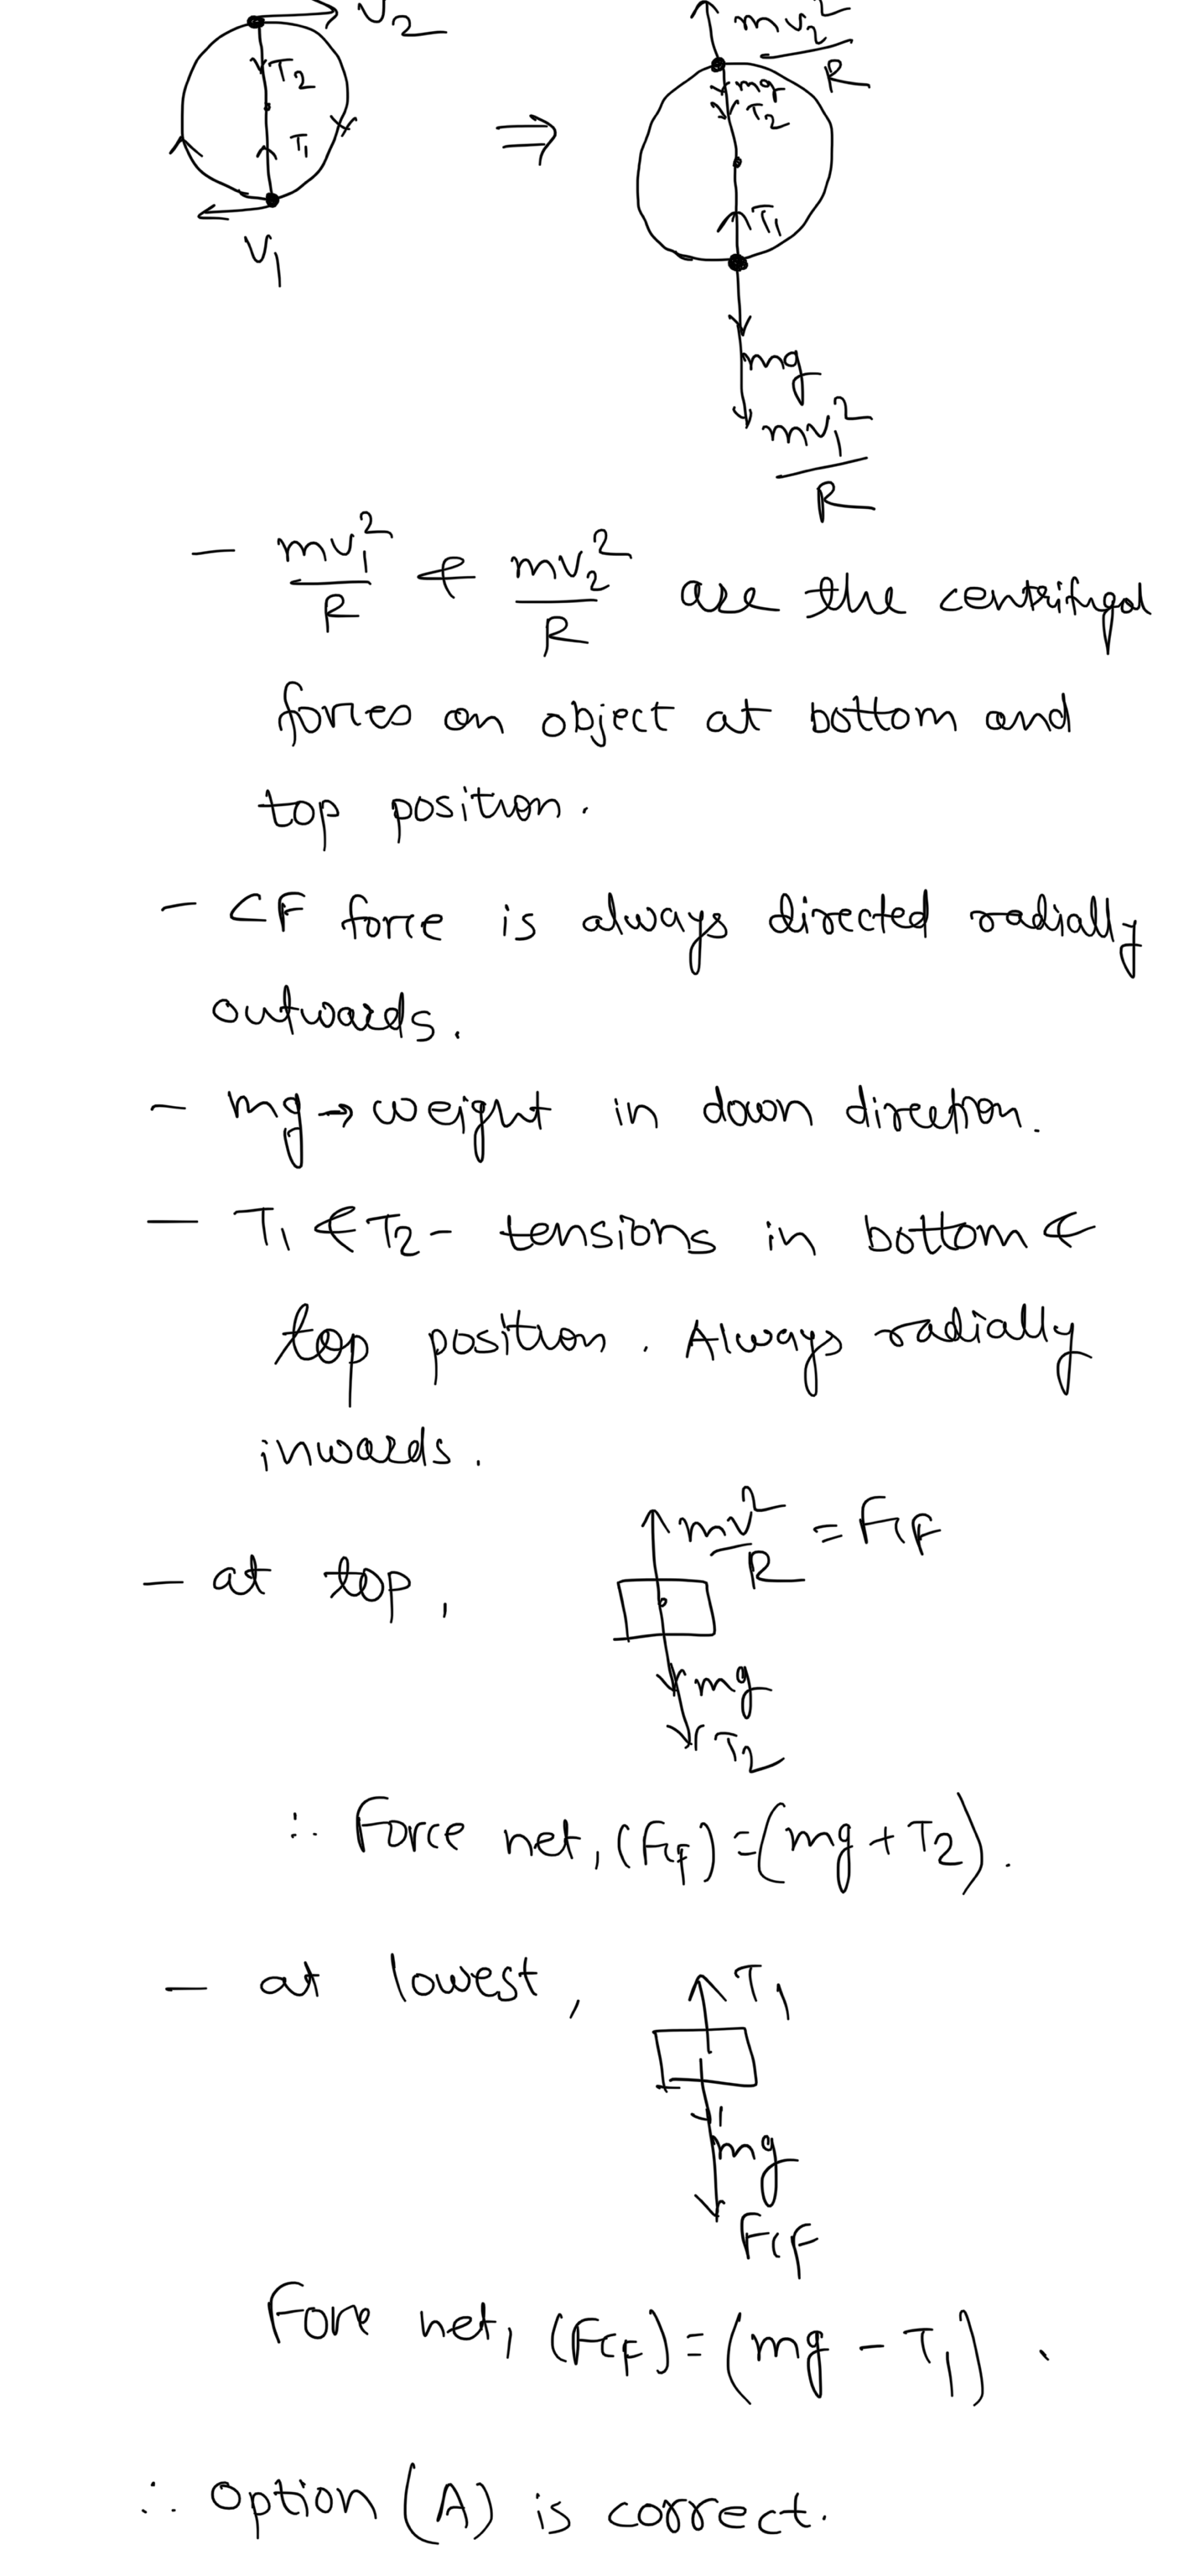 V2
T2
T1
V1
⇒
mv2²/R
mg
T2
T1
mg
mv1²/R
— mv1²/R & mv2²/R are the centrifugal
forces on object at bottom and
top position.
- CF force is always directed radially
outwards.
- mg → weight in down direction.
— T1 & T2 - tensions in bottom &
top position. Always radially
inwards.
— at top,
mv²/R = FCF
mg
T2
∴ Force net, (FCF) = (mg + T2).
— at lowest,
T1
mg
FCF
Force net, (FCF) = (mg - T1).
∴ option (A) is correct.